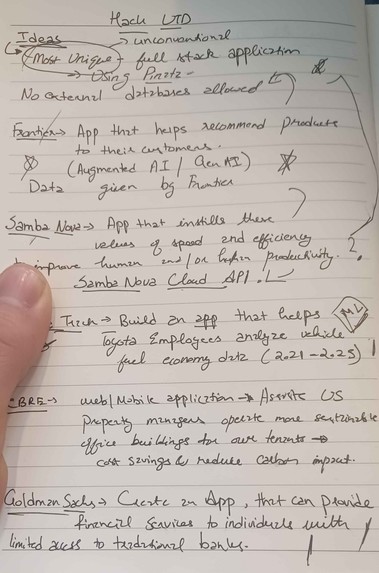 Hack UTD
Ideas → unconventional
→ Most Unique - full stack application
→ Using Pinata -
No external databases allowed
Frontier → App that helps recommend products
to their customers.
(Augmented AI / Gen AI)
Data given by Frontier
Samba Nova → App that instills these
values of speed and efficiency
to improve human and/or productivity. ?
Samba Nova Cloud API.
: → Build an app that helps ML
Toyota Employees analyze vehicle
fuel economy data (2021-2025)
CBRE → web/Mobile application → Assists US
property managers operate more sustainable
office buildings for our tenants →
cost savings & reduce carbon impact.
Goldman Sachs → Create an App, that can provide
financial services to individuals with
limited access to traditional banks.